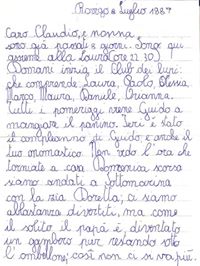 Rovigo 2 Luglio 1987
Caro Claudio, e nonna,
sono già passati 8 giorni. Sono qui
assieme alla Laura (ore 22.30).
Domani inizia il Club dei lupi:
che comprende: Laura, Paolo, Elena,
Marco, Maura, Daniele, Arianna.
Tutti i pomeriggi viene Guido a
mangiare il panino. Ieri è stato
il compleanno di Guido e anche il
tuo onomastico. Non vedo l'ora che
torniate a casa. Domenica scorsa
siamo andati a Sottomarina
con la zia Lorella; ci siamo
abbastanza divertiti, ma come
il solito il papà è diventato
un gambero pur restando sotto
l'ombrellone; così non ci si va più.